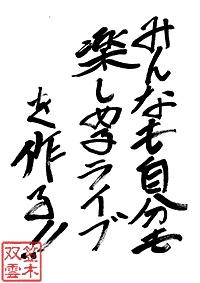 みんなも自分も
楽しめるライブ
を作る!!
笠木
双雲